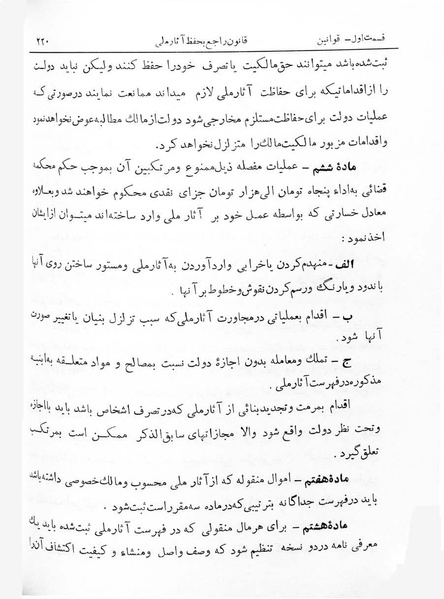 قسمت اول – قوانین قانون راجع بحفظ آثار ملی ۲۲۰
ثبت شده باشد میتوانند حق مالکیت یا تصرف خود را حفظ کنند ولیکن نباید دولت
را از اقداماتیکه برای حفاظت آثار ملی لازم میداند ممانعت نمایند در صورتی که
عملیات دولت برای حفاظت مستلزم مخارجی شود دولت از مالک مطالبه عوض نخواهد نمود
و اقدامات مزبور مالکیت مالک را متزلزل نخواهد کرد.
مادهٔ ششم – عملیات مفصله ذیل ممنوع و مرتکبین آن بموجب حکم محکمه
قضائی به اداء پنجاه تومان الی هزار تومان جزای نقدی محکوم خواهند شد و بعلاوه
معادل خسارتی که بواسطه عمل خود بر آثار ملی وارد ساخته‌اند میتوان از ایشان
اخذ نمود :
الف – منهدم کردن یا خرابی وارد آوردن به آثار ملی و مستور ساختن روی آنها
با ندود و یا رنگ و رسم کردن نقوش و خطوط بر آنها .
ب – اقدام بعملیاتی در مجاورت آثار ملی که سبب تزلزل بنیان یا تغییر صورت
آنها شود.
ج – تملک و معامله بدون اجازهٔ دولت نسبت بمصالح و مواد متعلقه به ابنیه
مذکوره در فهرست آثار ملی .
اقدام بمرمت و تجدید بنائی از آثار ملی که در تصرف اشخاص باشد باید با اجازه
و تحت نظر دولت واقع شود والا مجازاتهای سابق الذکر ممکن است بمرتکب
تعلق گیرد .
مادهٔ هفتم – اموال منقوله که از آثار ملی محسوب و مالک خصوصی داشته باشد
باید در فهرست جداگانه بترتیبی که در ماده سه مقرر است ثبت شود.
مادهٔ هشتم – برای هر مال منقولی که در فهرست آثار ملی ثبت شده باید یک
معرفی نامه در دو نسخه تنظیم شود که وصف و اصل و منشاء و کیفیت اکتشاف آن را